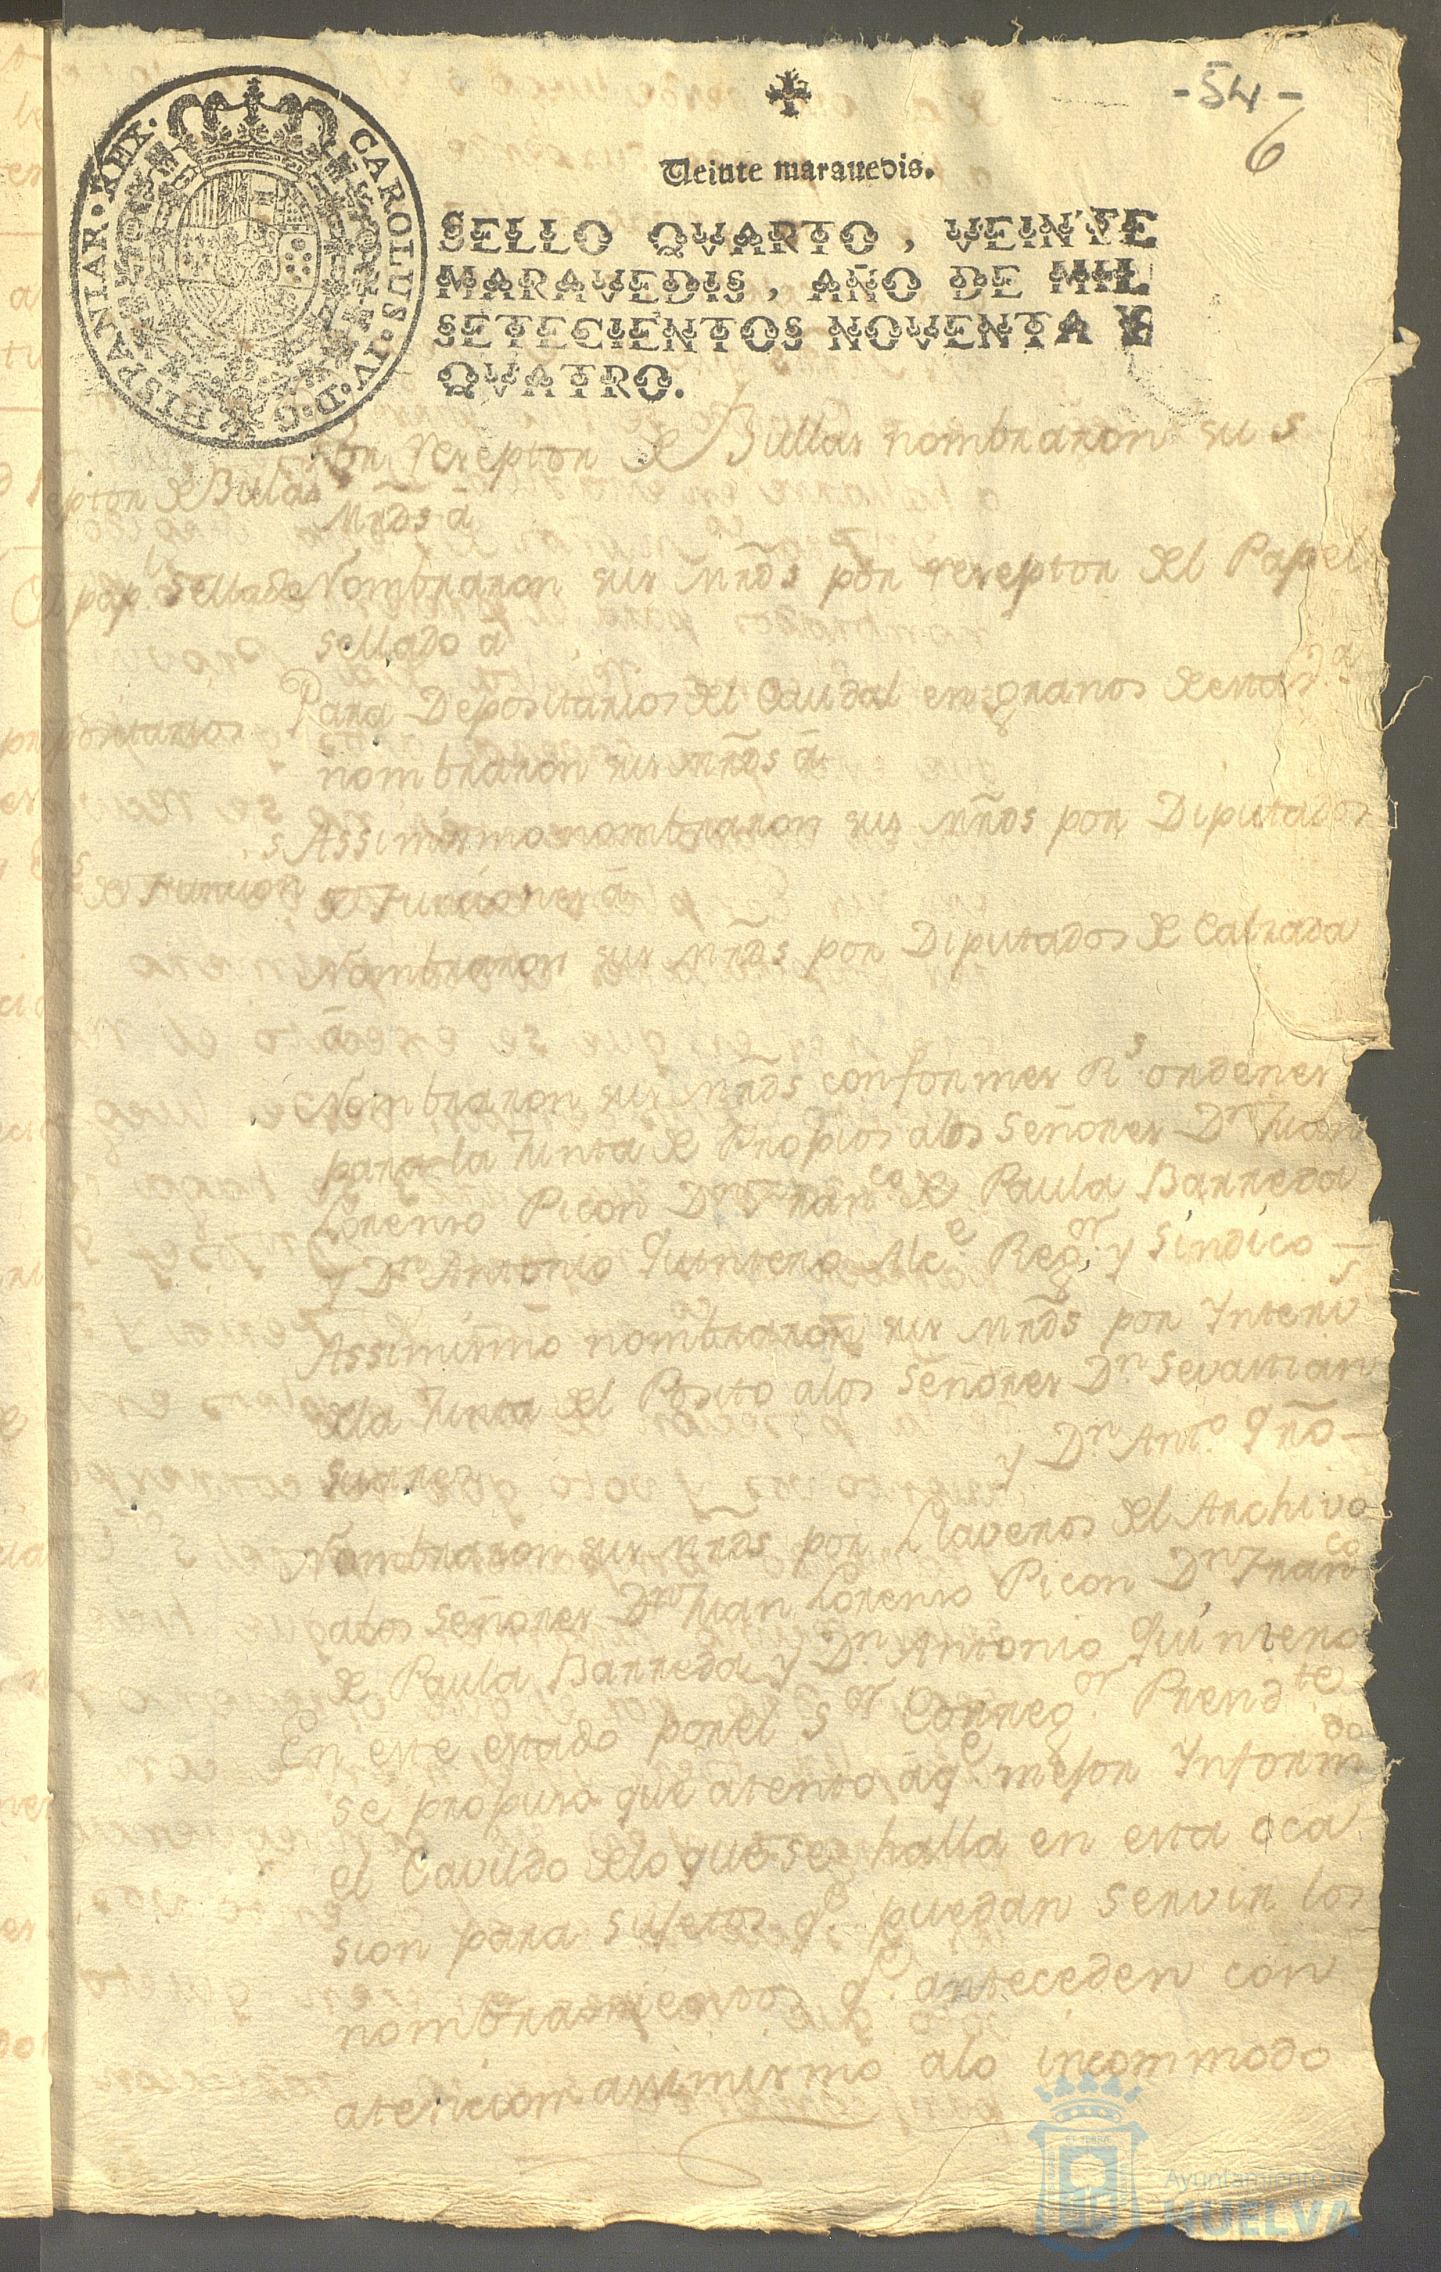 -54-
6
Veinte marauedis.
SELLO QVARTO, VEINTE
MARAVEDIS, AÑO DE MIL
SETECIENTOS NOVENTA Y
QVATRO.
CAROLUS·IV·D·G·HISPANIAR·REX·
Por rreceptor de Bullas nombraron sus
eptor de Bulas
Mrds â
pap.l Sellado
Nombraron sus Mrds por receptor del Papel
sellado â
positarios
Para Depositarios del Caudal en granos de esta
nombraron sus Mrds â
Assimismo nombraron sus Mrds por Diputados
s de Funcion
de Funciones â
Nombraron sus Mrds por Diputados de Calzada
â
Nombraron sus Mrds conformes R.s ordenes
para la Junta de Propios alos Señores Dn Juan
Lorenso Picon Dn Fran.co de Paula Barreda
y Dn Antonio Quintero Alc.e Reg.or y Sindico
Assimismo nombraron sus Mrds por Interv
dela Junta del Posito alos Señores Dn Sevastian
Suarez y Dn Ant.o Qño
Nombraron sus Mrds por Llaveros del Archivo
alos Señores Dn Juan Lorenso Picon Dn Fran.co
de Paula Barreda y Dn Antonio Quintero
En este estado por el S.or Correg.or Presid.te
se propuso que atento âq.e mejor Inform.do
el Cavildo delo que se halla en esta oca
sion para sujetos q.e puedan servir los
nombramientos q.e anteceden con
atencion assimismo alo incommodo
Ayuntamiento de
HUELVA